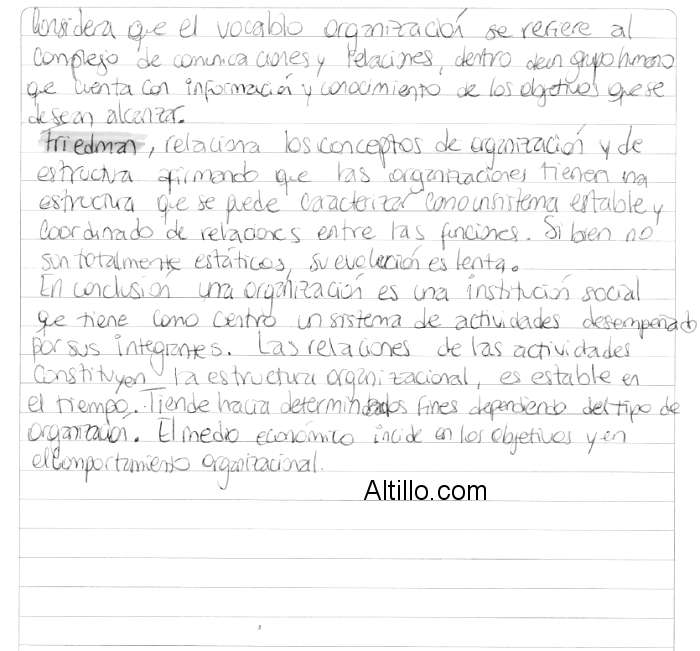 Considera que el vocablo organización se refiere al
complejo de comunicaciones y relaciones, dentro de un grupo humano
que cuenta con información y conocimiento de los objetivos que se
desean alcanzar.
Friedman, relaciona los conceptos de organización y de
estructura afirmando que las organizaciones tienen una
estructura que se puede caracterizar como un sistema estable y
coordinado de relaciones entre las funciones. Si bien no
son totalmente estáticos, su evolución es lenta.
En conclusión una organización es una institución social
que tiene como centro un sistema de actividades desempeñado
por sus integrantes. Las relaciones de las actividades
constituyen la estructura organizacional, es estable en
el tiempo. Tiende hacia determinados fines dependiendo del tipo de
organización. El medio económico incide en los objetivos y en
el comportamiento organizacional.
Altillo.com